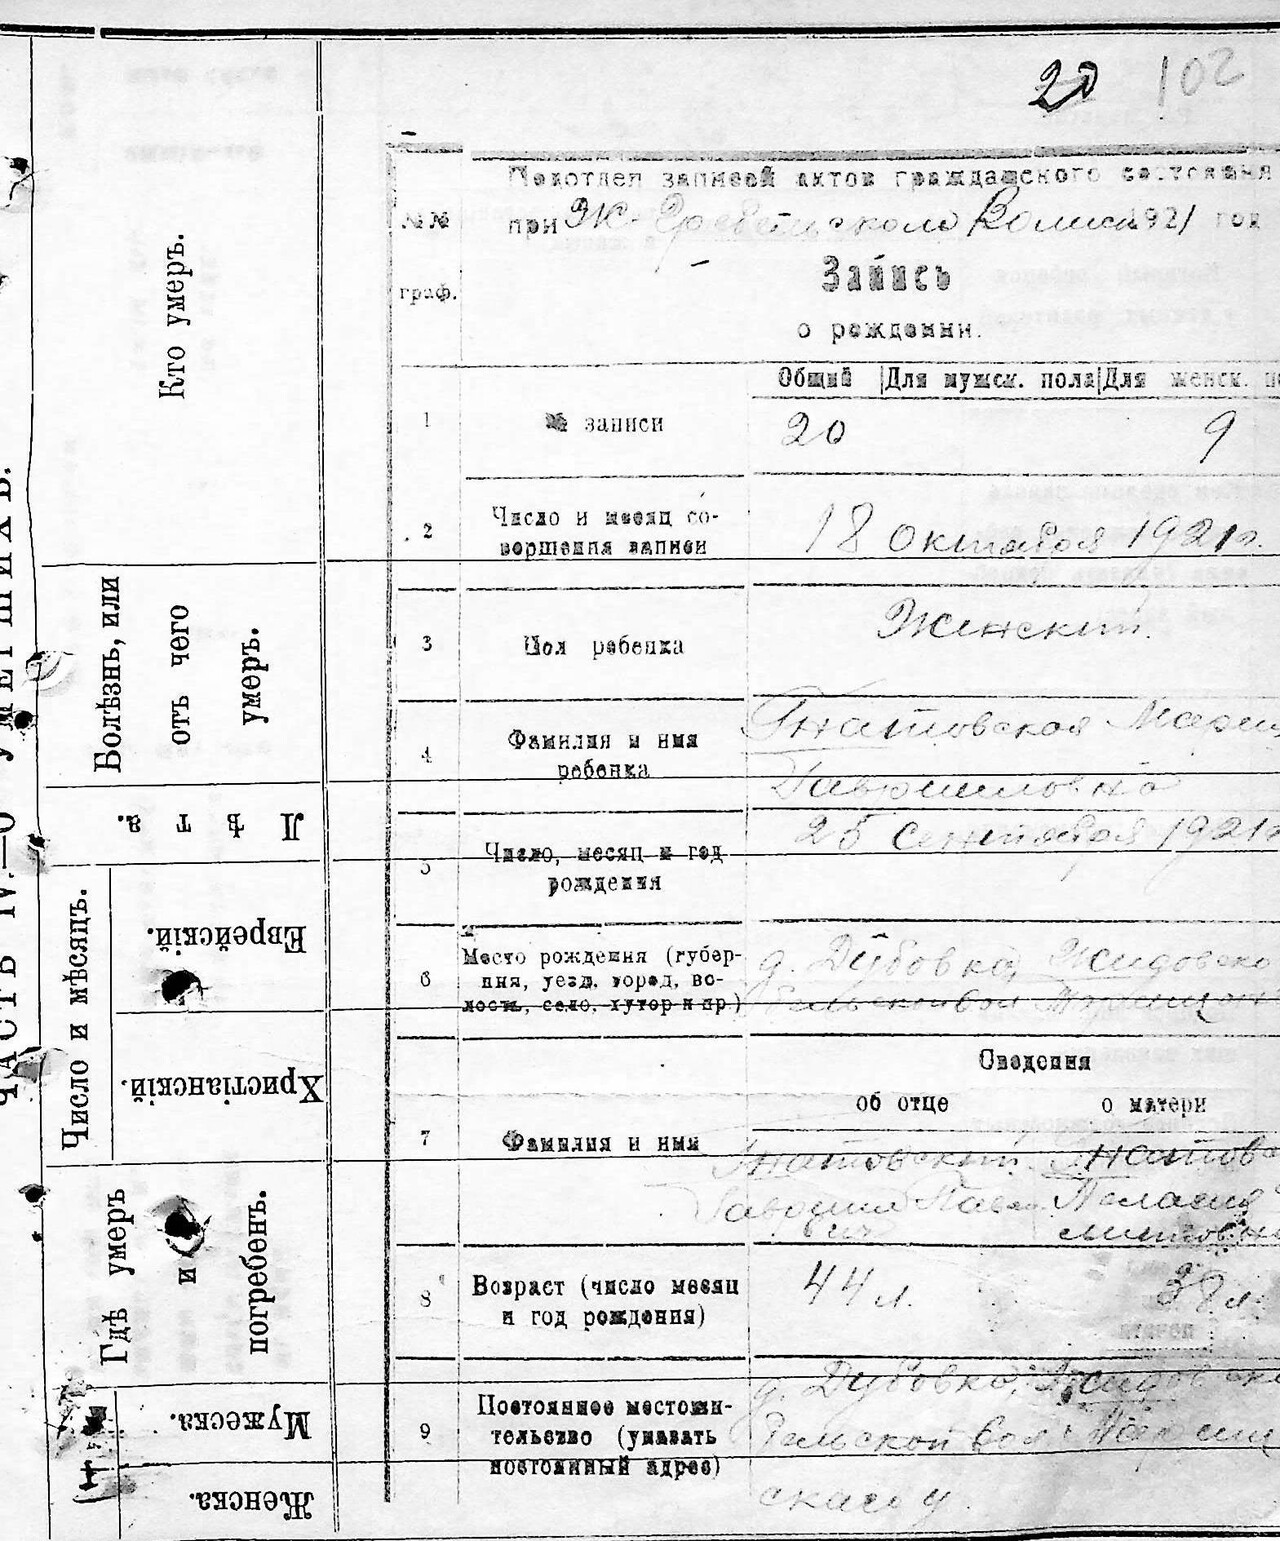 20 102
Подотдел записей актов гражданского состояния
№№ при Ж-Гребельском Волисп. 1921 год
граф. Запись
о рождении.
Общий Для мужск. пола Для женск. по
1 № записи 20 9
2 Число и месяц со-
вершения записи 18 октября 1921 г.
3 Пол ребенка Женский.
4 Фамилия и имя
ребенка Гнатовская Мария
Гавриловна
5 Число, месяц и год
рождения 25 сентября 1921 г
6 Место рождения (губер-
ния, уезд, город, во-
лость, село, хутор и пр.)
д. Дубовка, Жидовско
вол
Сведения
об отце о матери
7 Фамилия и имя
Гнатовский Гнатовс
Гаврил Павло Пелагия
вич
8 Возраст (число месяц
и год рождения) 44 л. 38 л.
9 Постоянное местожи-
тельство (указать
постоянный адрес)
д. Дубовка, Жидовско
вол
ского у.
ЧАСТЬ IV.—О УМЕРШИХЪ.
Кто умеръ.
Болѣзнь, или
отъ чего
умеръ.
Лѣта.
Число и мѣсяцъ.
Еврейскій.
Христіанскій.
Гдѣ умеръ
и
погребенъ.
Мужеска.
Женска.